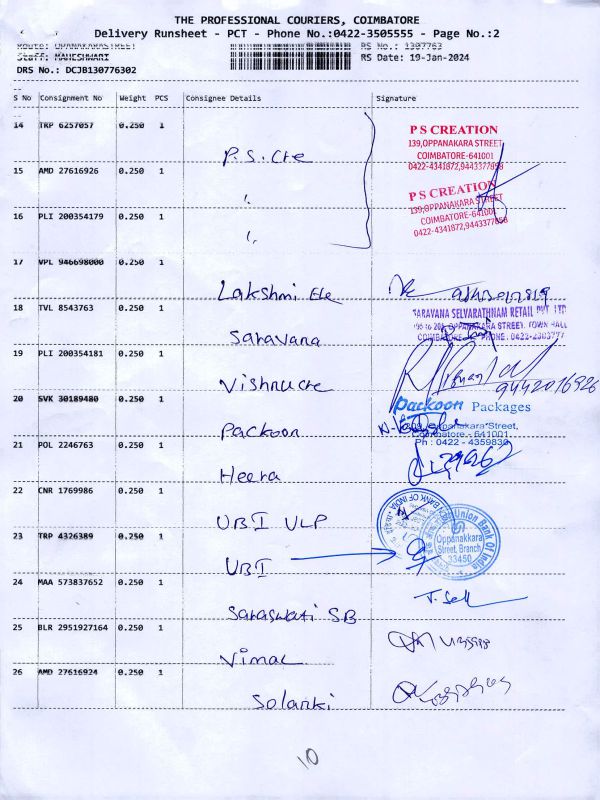 THE PROFESSIONAL COURIERS, COIMBATORE
Delivery Runsheet - PCT - Phone No.:0422-3505555 - Page No.:2
Route: OPPANAKARASTREET RS No.: 1307763
Staff: MAHESHWARI RS Date: 19-Jan-2024
DRS No.: DCJB130776302
S No Consignment No Weight PCS Consignee Details Signature
14 TRP 6257057 0.250 1
P S CREATION
139,OPPANAKARA STREET,
COIMBATORE-641001
0422-4341872,9443377858
P.S. Cre
15 AMD 27616926 0.250 1
P S CREATION
139,OPPANAKARA STREET
COIMBATORE-641001
0422-4341872,9443377858
16 PLI 200354179 0.250 1
17 VPL 946698000 0.250 1
Lakshmi Ele
18 TVL 8543763 0.250 1
SARAVANA SELVARATHNAM RETAIL PVT LTD
OPPANAKARA STREET, TOWN HALL
COIMBATORE PHONE: 0422-2303777
Saravana
19 PLI 200354181 0.250 1
Vishnu cre
9442016926
20 SVK 30189480 0.250 1
Packoon Packages
Oppanakara Street,
Coimbatore - 641001
Ph : 0422 - 4359830
Packoon
21 POL 2246763 0.250 1
Heera
22 CNR 1769986 0.250 1
UBI VLP
23 TRP 4326389 0.250 1
Union Bank Of India
Oppanakkara
Street, Branch
33450
UBI
24 MAA 573837652 0.250 1
Saraswati SB
25 BLR 2951927164 0.250 1
Vimal
26 AMD 27616924 0.250 1
Solanki
10